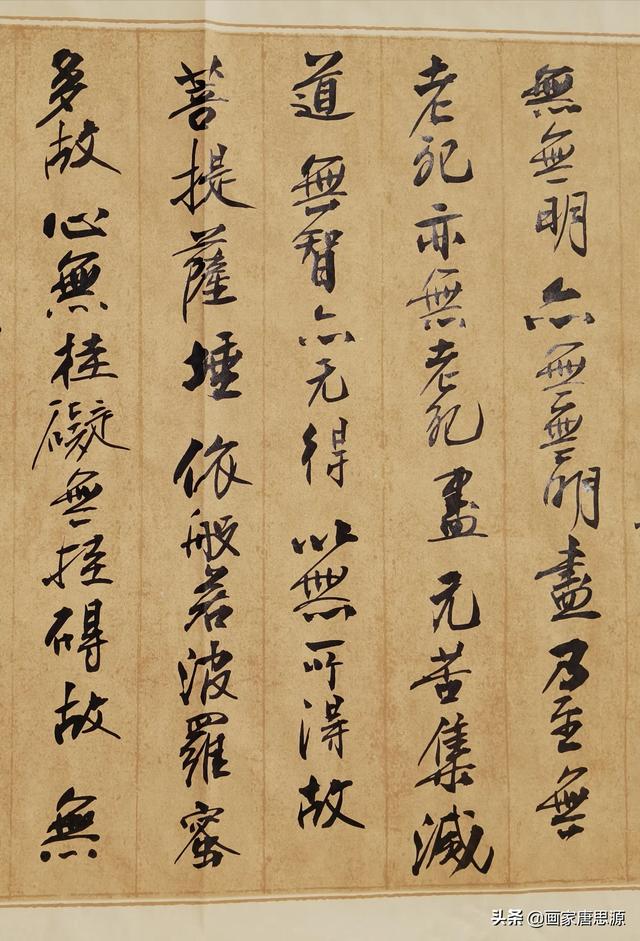 無無明亦無無明盡乃至無
老死亦無老死盡无苦集滅
道無智亦无得以無所得故
菩提薩埵依般若波羅蜜
多故心無挂礙無挂碍故無
头条 @画家唐思源